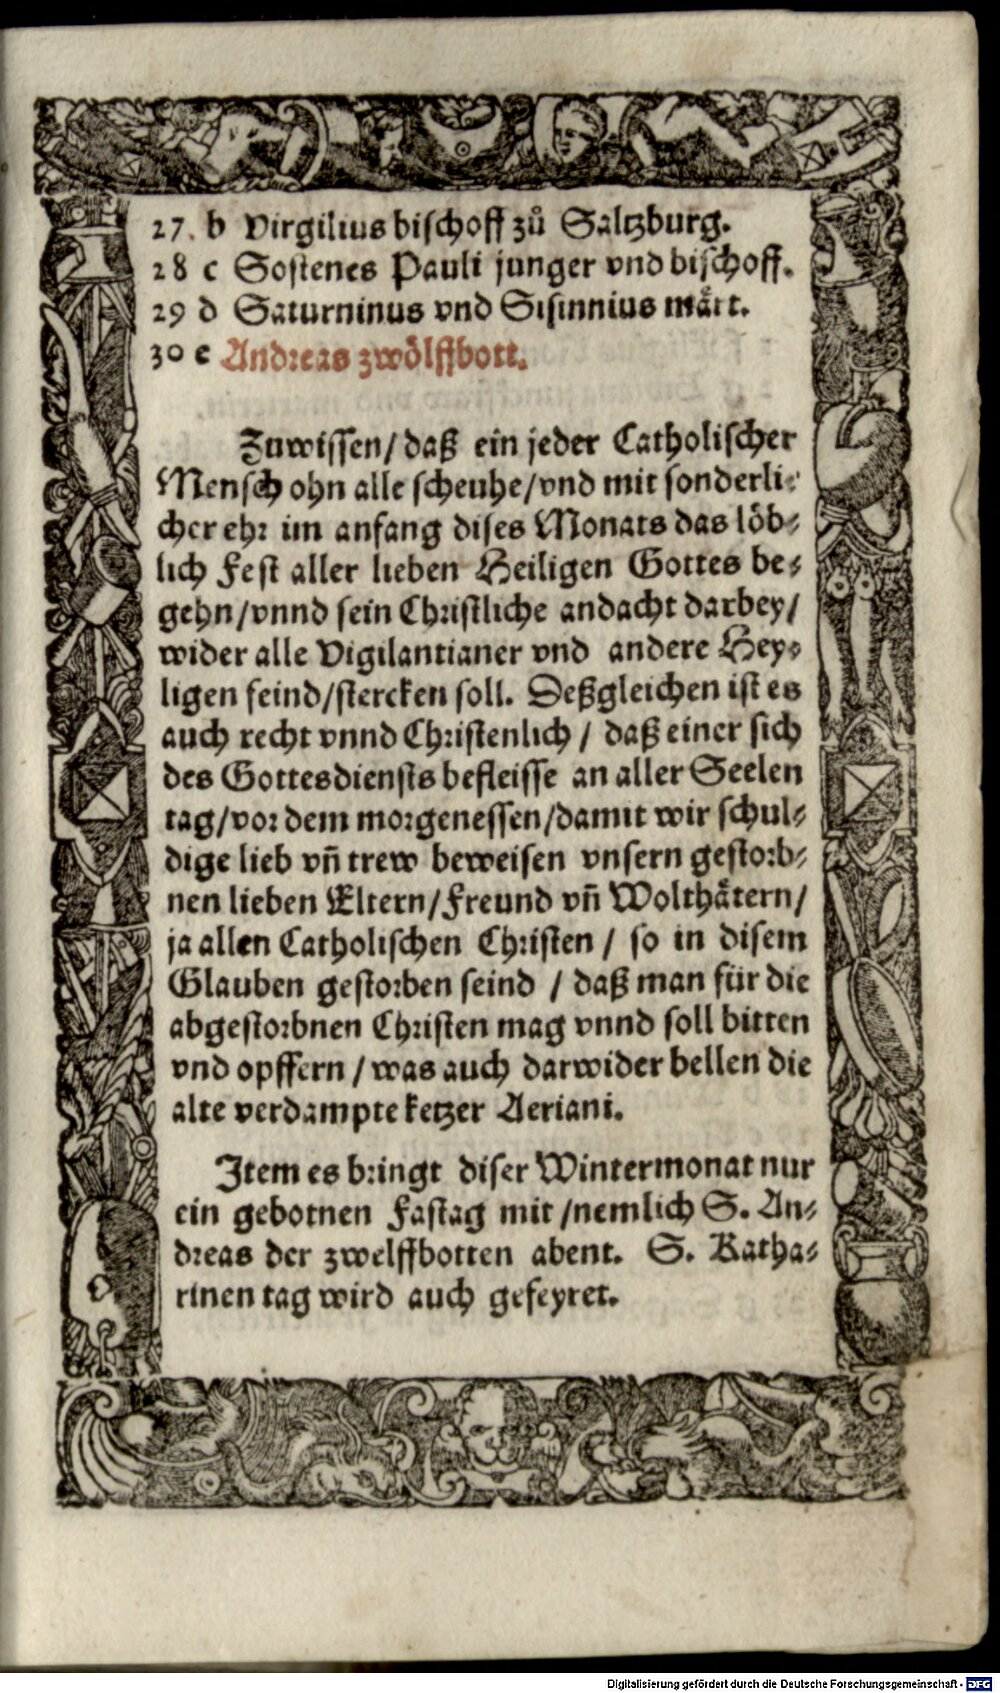 27. b Virgilius bischoff zů Saltzburg.
28 c Sostenes Pauli junger vnd bischoff.
29 d Saturninus vnd Sisinnius mårt.
30 e Andreas zwölffbott.
Zuwissen/ daß ein jeder Catholischer
Mensch ohn alle scheuhe/vnd mit sonderli-
cher ehr im anfang dises Monats das löb-
lich Fest aller lieben Heiligen Gottes be-
gehn/vnnd sein Christliche andacht darbey/
wider alle Vigilantianer vnd andere Hey-
ligen feind/stercken soll. Deßgleichen ist es
auch recht vnnd Christenlich / daß einer sich
des Gottesdiensts befleisse an aller Seelen
tag/vor dem morgenessen/damit wir schul-
dige lieb vñ trew beweisen vnsern gestorb-
nen lieben Eltern/Freund vñ Wolthätern/
ja allen Catholischen Christen / so in disem
Glauben gestorben seind / daß man für die
abgestorbnen Christen mag vnnd soll bitten
vnd opffern / was auch darwider bellen die
alte verdampte ketzer Aeriani.
Item es bringt diser Wintermonat nur
ein gebotnen Fastag mit /nemlich S. An-
dreas der zwelffbotten abent. S. Katha-
rinen tag wird auch gefeyret.
Digitalisierung gefördert durch die Deutsche Forschungsgemeinschaft - DFG